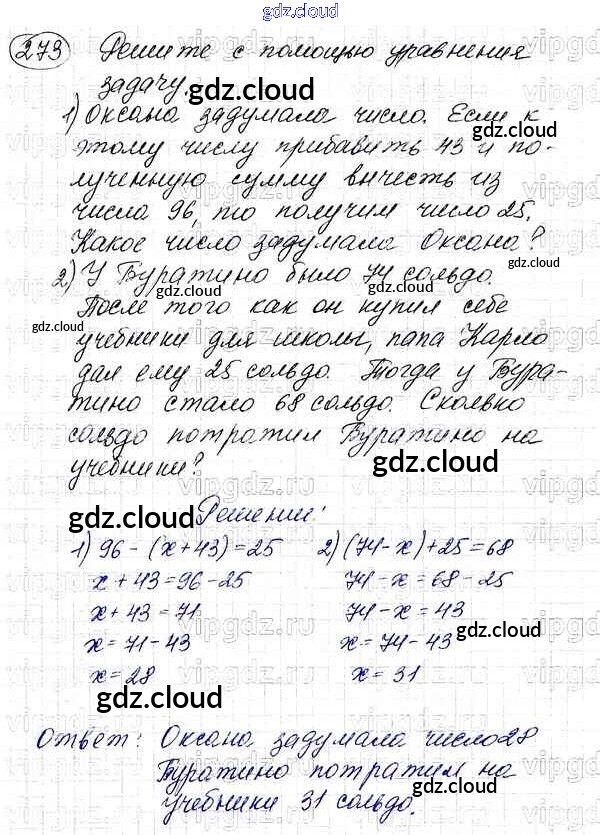 gdz.cloud
273 Решите с помощью уравнения
задачу.
1) Оксана задумала число. Если к
этому числу прибавить 43 и по-
лученную сумму вычесть из
числа 96, то получим число 25.
Какое число задумала Оксана?
2) У Буратино было 74 сольдо.
После того как он купил себе
учебники для школы, папа Карло
дал ему 25 сольдо. Тогда у Бура-
тино стало 68 сольдо. Сколько
сольдо потратил Буратино на
учебники?
Решение:
1) 96 - (x+43)=25 2) (74-x)+25=68
x+43=96-25 74-x=68-25
x+43=71 74-x=43
x=71-43 x=74-43
x=28 x=31
Ответ: Оксана задумала число 28
Буратино потратил на
учебники 31 сольдо.